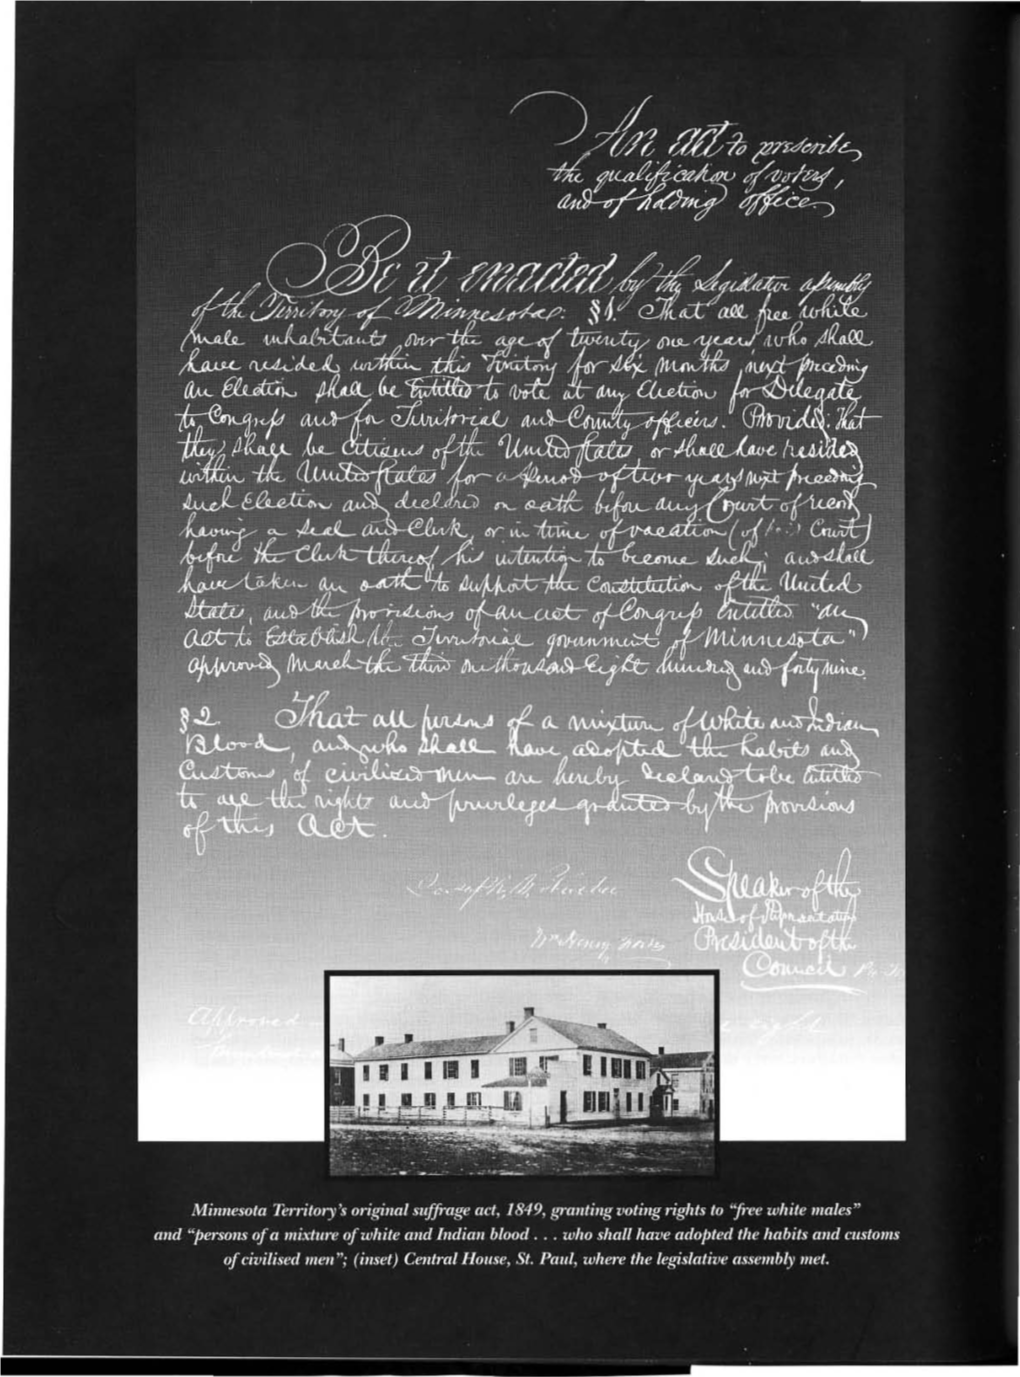 An act to prescribe
the qualification of voters,
and of holding office.
Be it enacted by the Legislative assembly
of the Territory of Minnesota: §1. That all free white
male inhabitants over the age of twenty one years, who shall
have resided within this Territory for six months next preceding
an Election shall be Entitled to vote at any Election for Delegate
to Congress and for Territorial and County officers. Provided, That
they shall be Citizens of the United States, or shall have resided
within the United States for a period of two years next preceeding
such Election and declared on oath before any Court of record
having a seal and Clerk, or in time of vacation (of said Court)
before the Clerk thereof his intention to become such; and shall
have taken an oath to support the Constitution of the United
States, and the provisions of an act of Congress Entitled "an
act to Establish the Territorial government of Minnesota"
approved March the third one thousand Eight hundred and forty nine.
§2. That all persons of a mixture of White and Indian
Blood, and who shall have adopted the habits and
Customs of civilized men are hereby declared to be Entitled
to all the rights and privileges granted by the provisions
of this Act.
Speaker of the
House of Representatives
Wm Henry Forbes
President of the
Council
Approved
Minnesota Territory's original suffrage act, 1849, granting voting rights to "free white males"
and "persons of a mixture of white and Indian blood . . . who shall have adopted the habits and customs
of civilised men"; (inset) Central House, St. Paul, where the legislative assembly met.